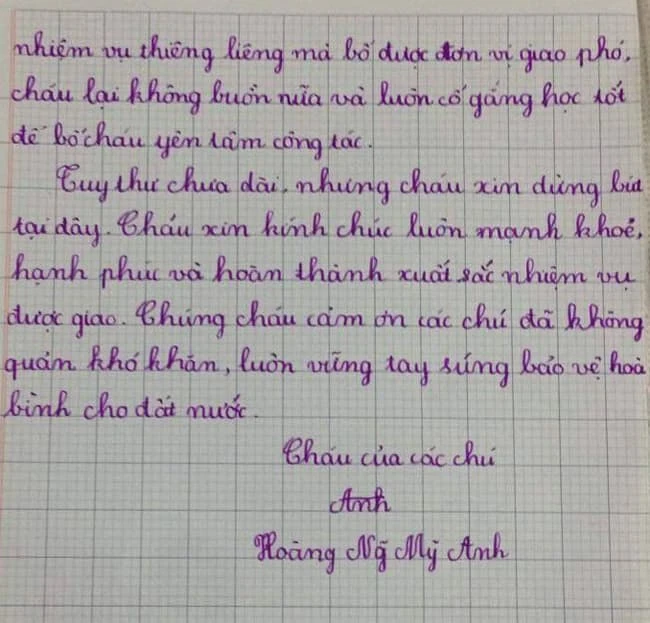 nhiệm vụ thiêng liêng mà bố được đơn vị giao phó,
cháu lại không buồn nữa và luôn cố gắng học tốt
để bố cháu yên tâm công tác.
Tuy thư chưa dài, nhưng cháu xin dừng bút
tại đây. Cháu xin kính chúc luôn mạnh khoẻ,
hạnh phúc và hoàn thành xuất sắc nhiệm vụ
được giao. Chúng cháu cảm ơn các chú đã không
quản khó khăn, luôn vững tay súng bảo vệ hoà
bình cho đất nước.
Cháu của các chú
Anh
Hoàng Ng̃ Mỹ Anh